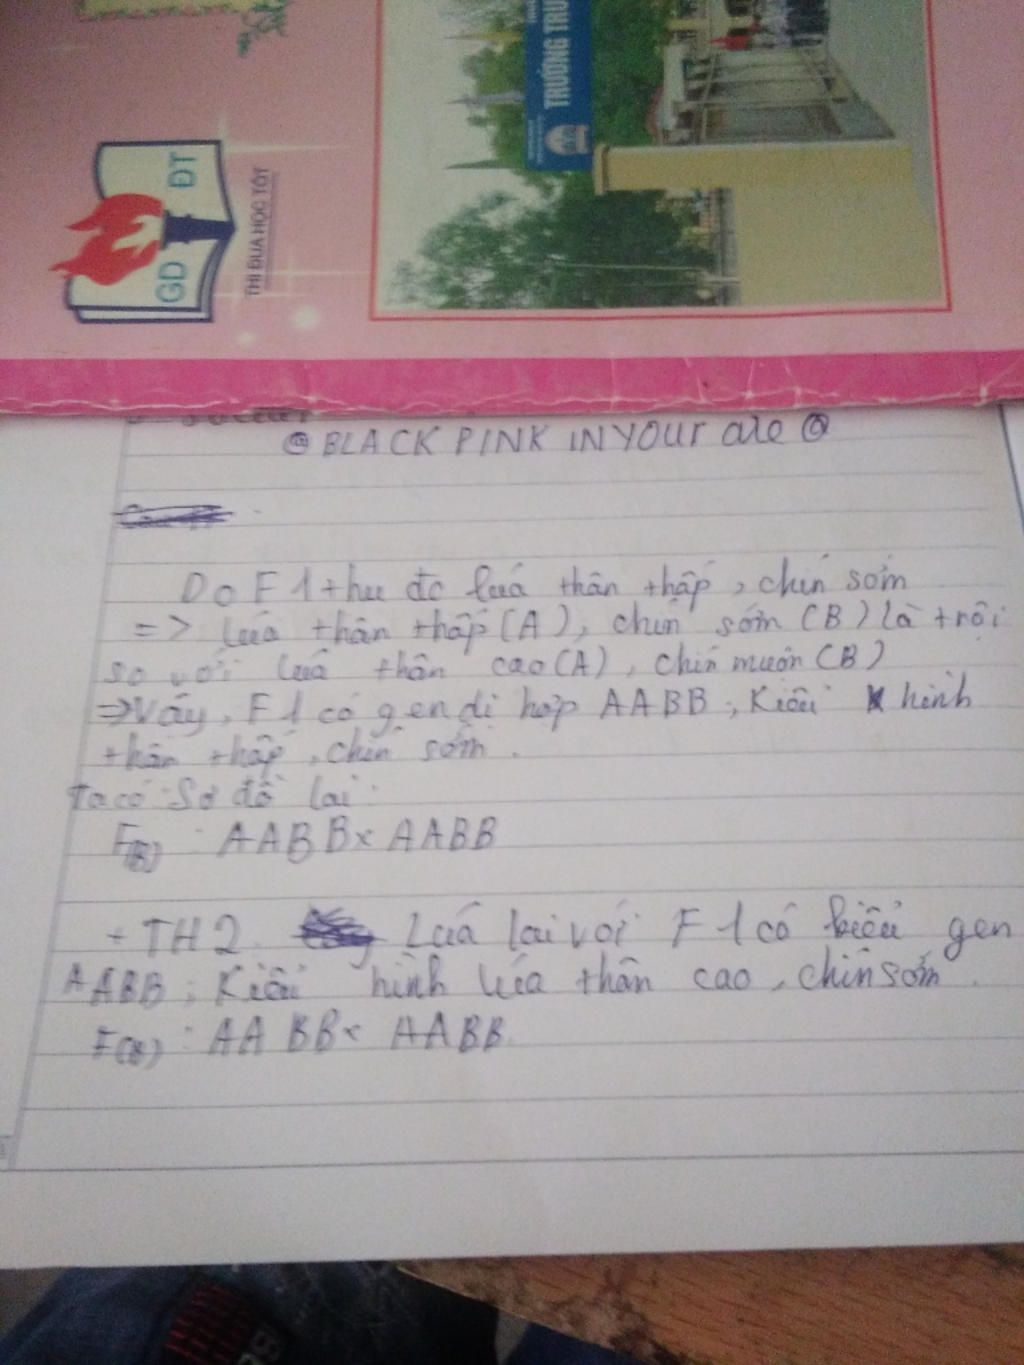 GD ĐT
THI ĐUA HỌC TỐT
TRƯỜNG TRU
BLACK PINK IN YOUr are
Do F1 thu đc luá thân thấp, chín sớm
=> luá thân thấp (A), chín sớm (B) là trội
so với luá thân cao (A), chín muôn (B)
=> Vậy, F1 có gen dị hợp AABB, Kiểu hình
thân thấp, chín sớm.
Ta có Sơ đồ lai:
: AABB x AABB
+ TH2. Luá lai với F1 có kiểu gen
AABB; Kiểu hình lúa thân cao, chín sớm.
: AABB x AABB.